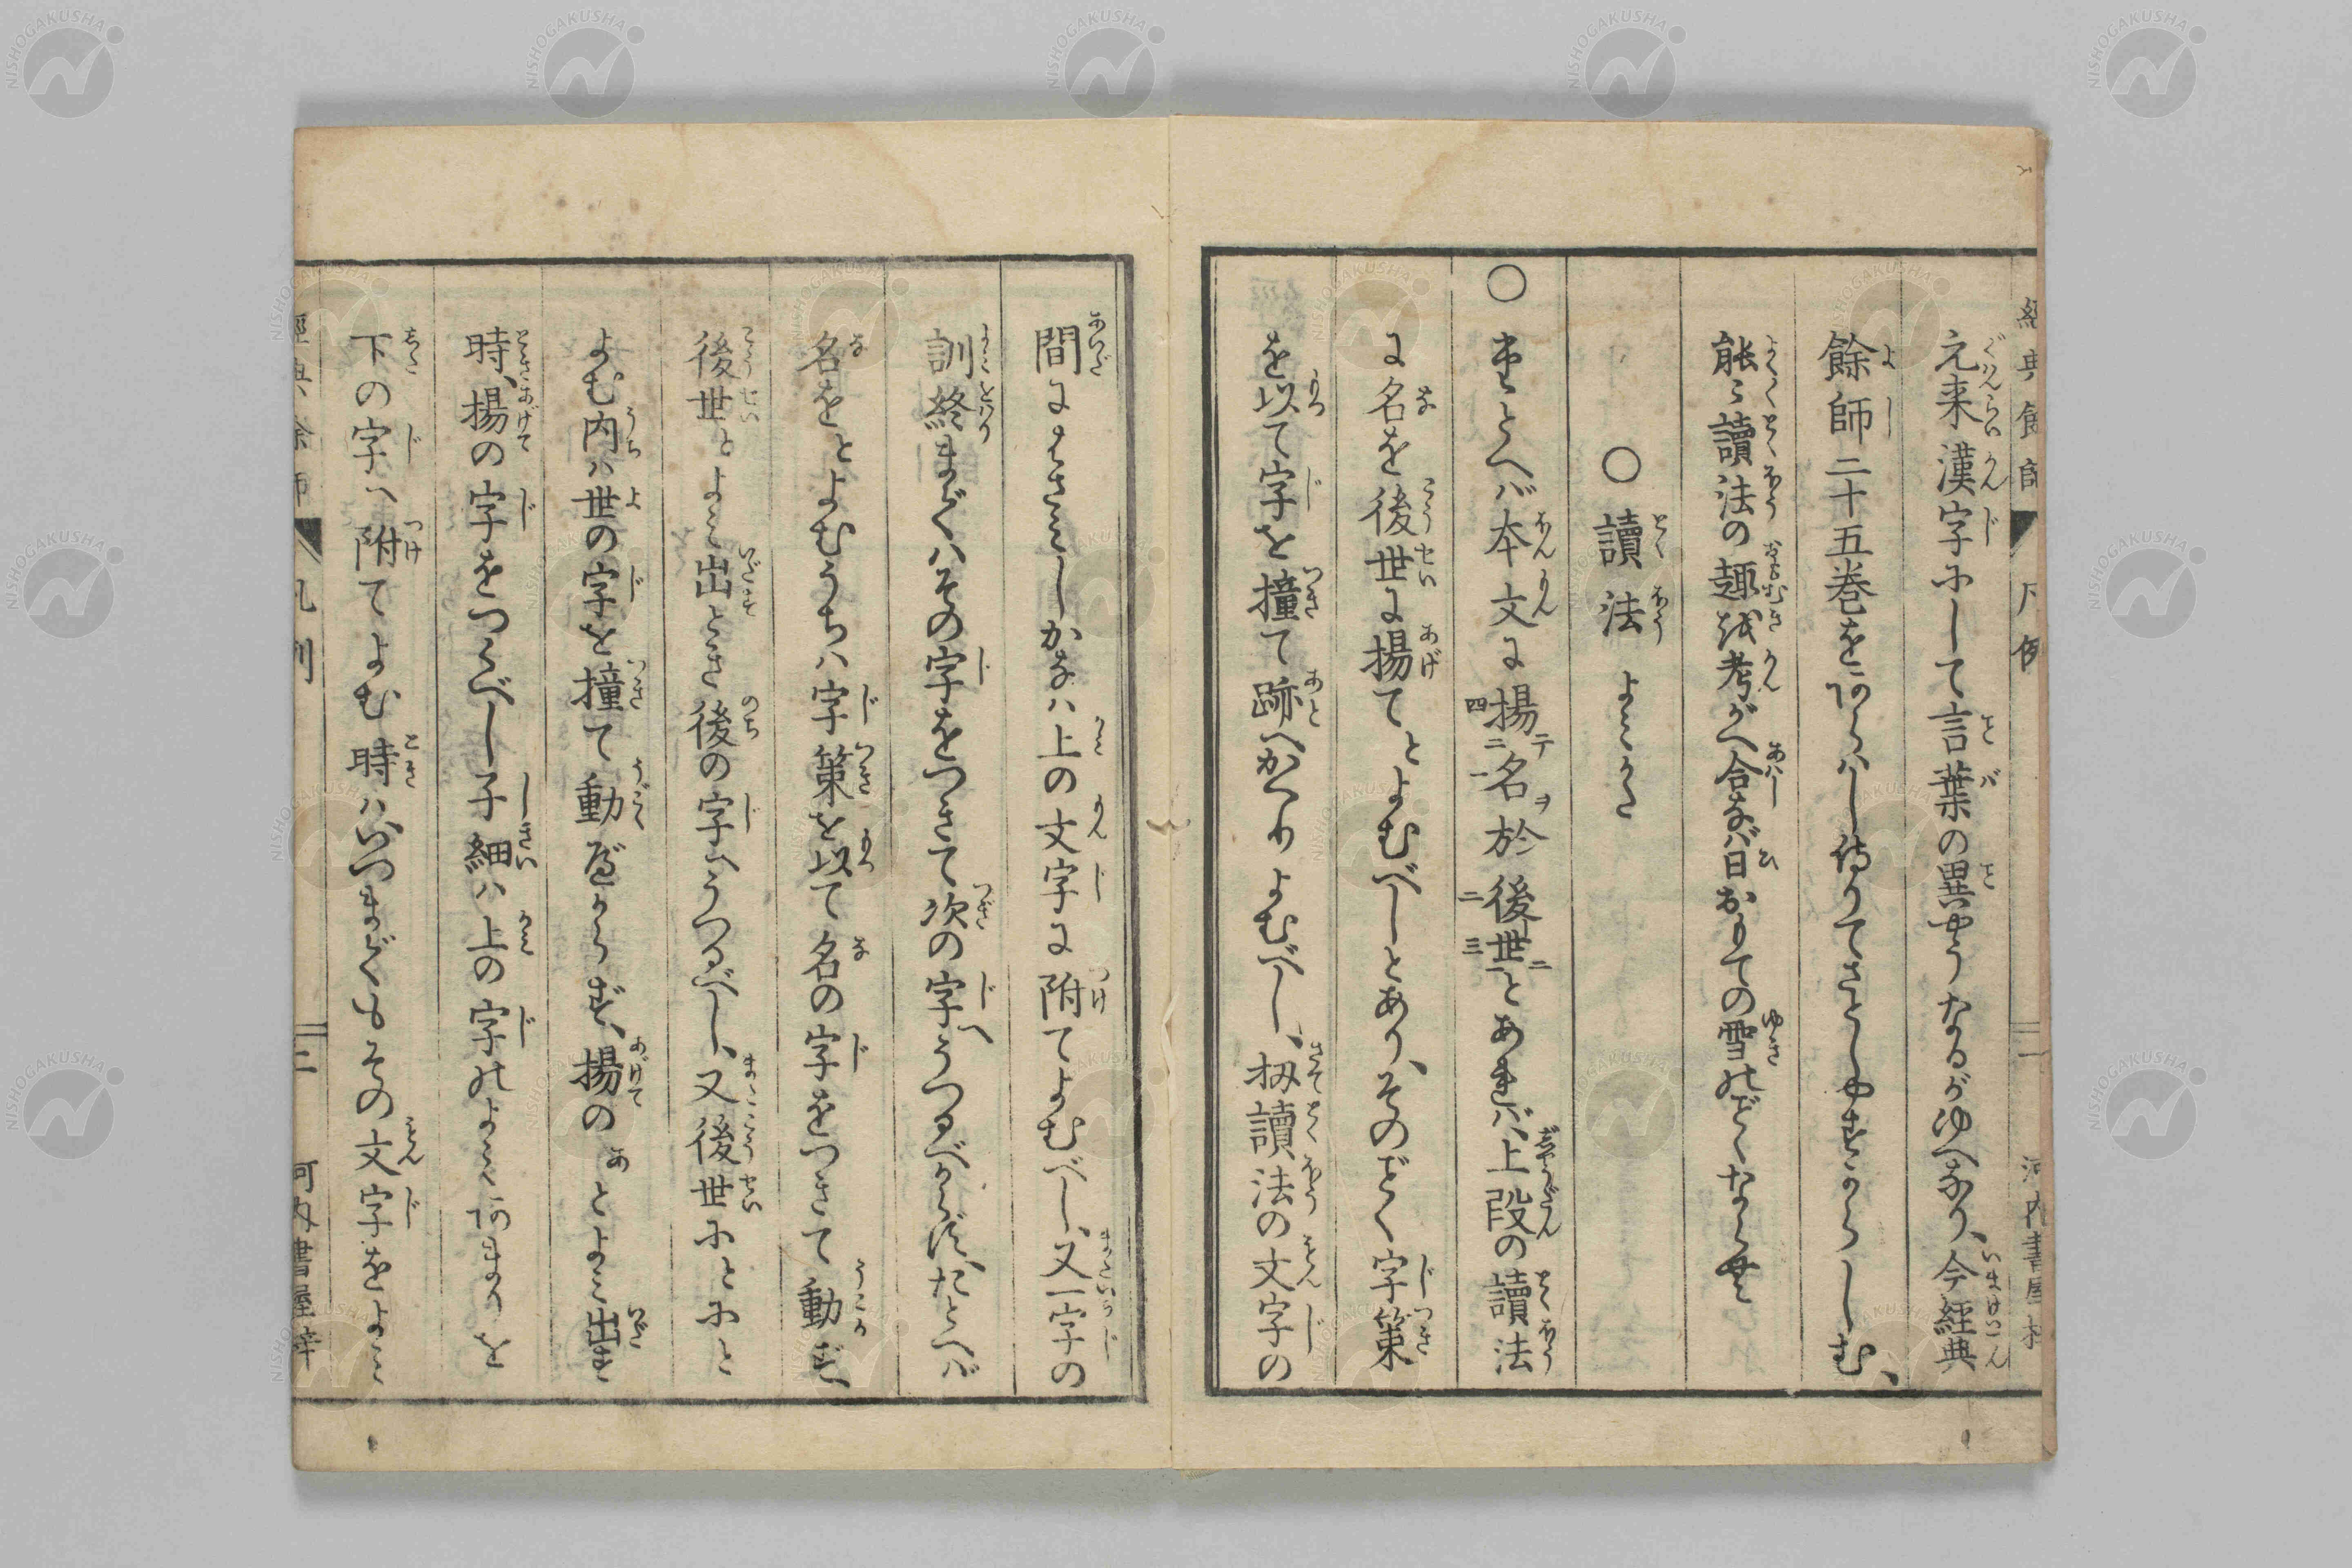 元来漢字にして言葉の異やうなるがゆへなり、今経典
餘師二十五巻をあらハし傍りてさとしやすからしむ、
能〻讀法の趣を考がへ合なバ日おもての雪のごとくならむ
○讀法 よみかた
○まとへバ本文に揚テ名ヲ於後世ニとあれバ、上段の讀法
に名を後世に揚てとよむべしとあり、そのごとく字策
を以て字を撞て跡へかへりよむべし、扨讀法の文字の
間にはさミしかなハ上の文字に附てよむべし、又一字の
訓終まではその字をつきて次の字へうつるべからず、たとへバ
名をとよむうちハ字策を以て名の字をつきて動ず、
後世とよミ出とき後の字へうつるべし、又後世にとにと
よむ内ハ世の字を撞て動べからず、揚の あとよミ出す
時、揚の字をつくべし子細ハ上の字のよミあまりを
下の字へ附てよむ時ハいつまでもその文字をよミ
經典餘師 凡例 二 河内書屋梓